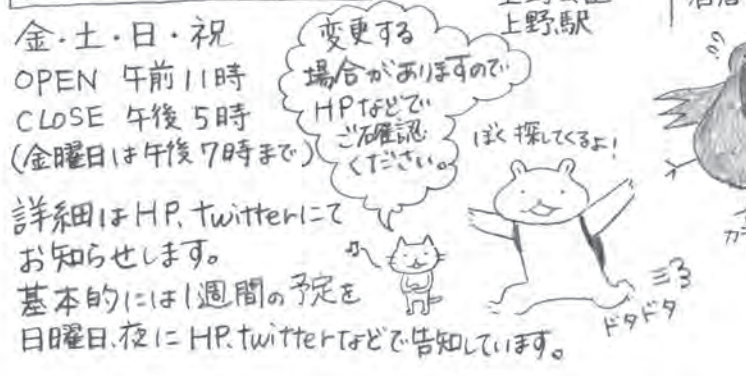 上野駅
金・土・日・祝
OPEN 午前11時
CLOSE 午後5時
(金曜日は午後7時まで)
変更する
場合がありますので
HPなどで
ご確認
ください。
ぼく探してくるよ!
詳細はHP、twitterにて
お知らせします。
基本的には1週間の予定を
日曜日、夜にHP、twitterなどで告知しています。
ドタドタ